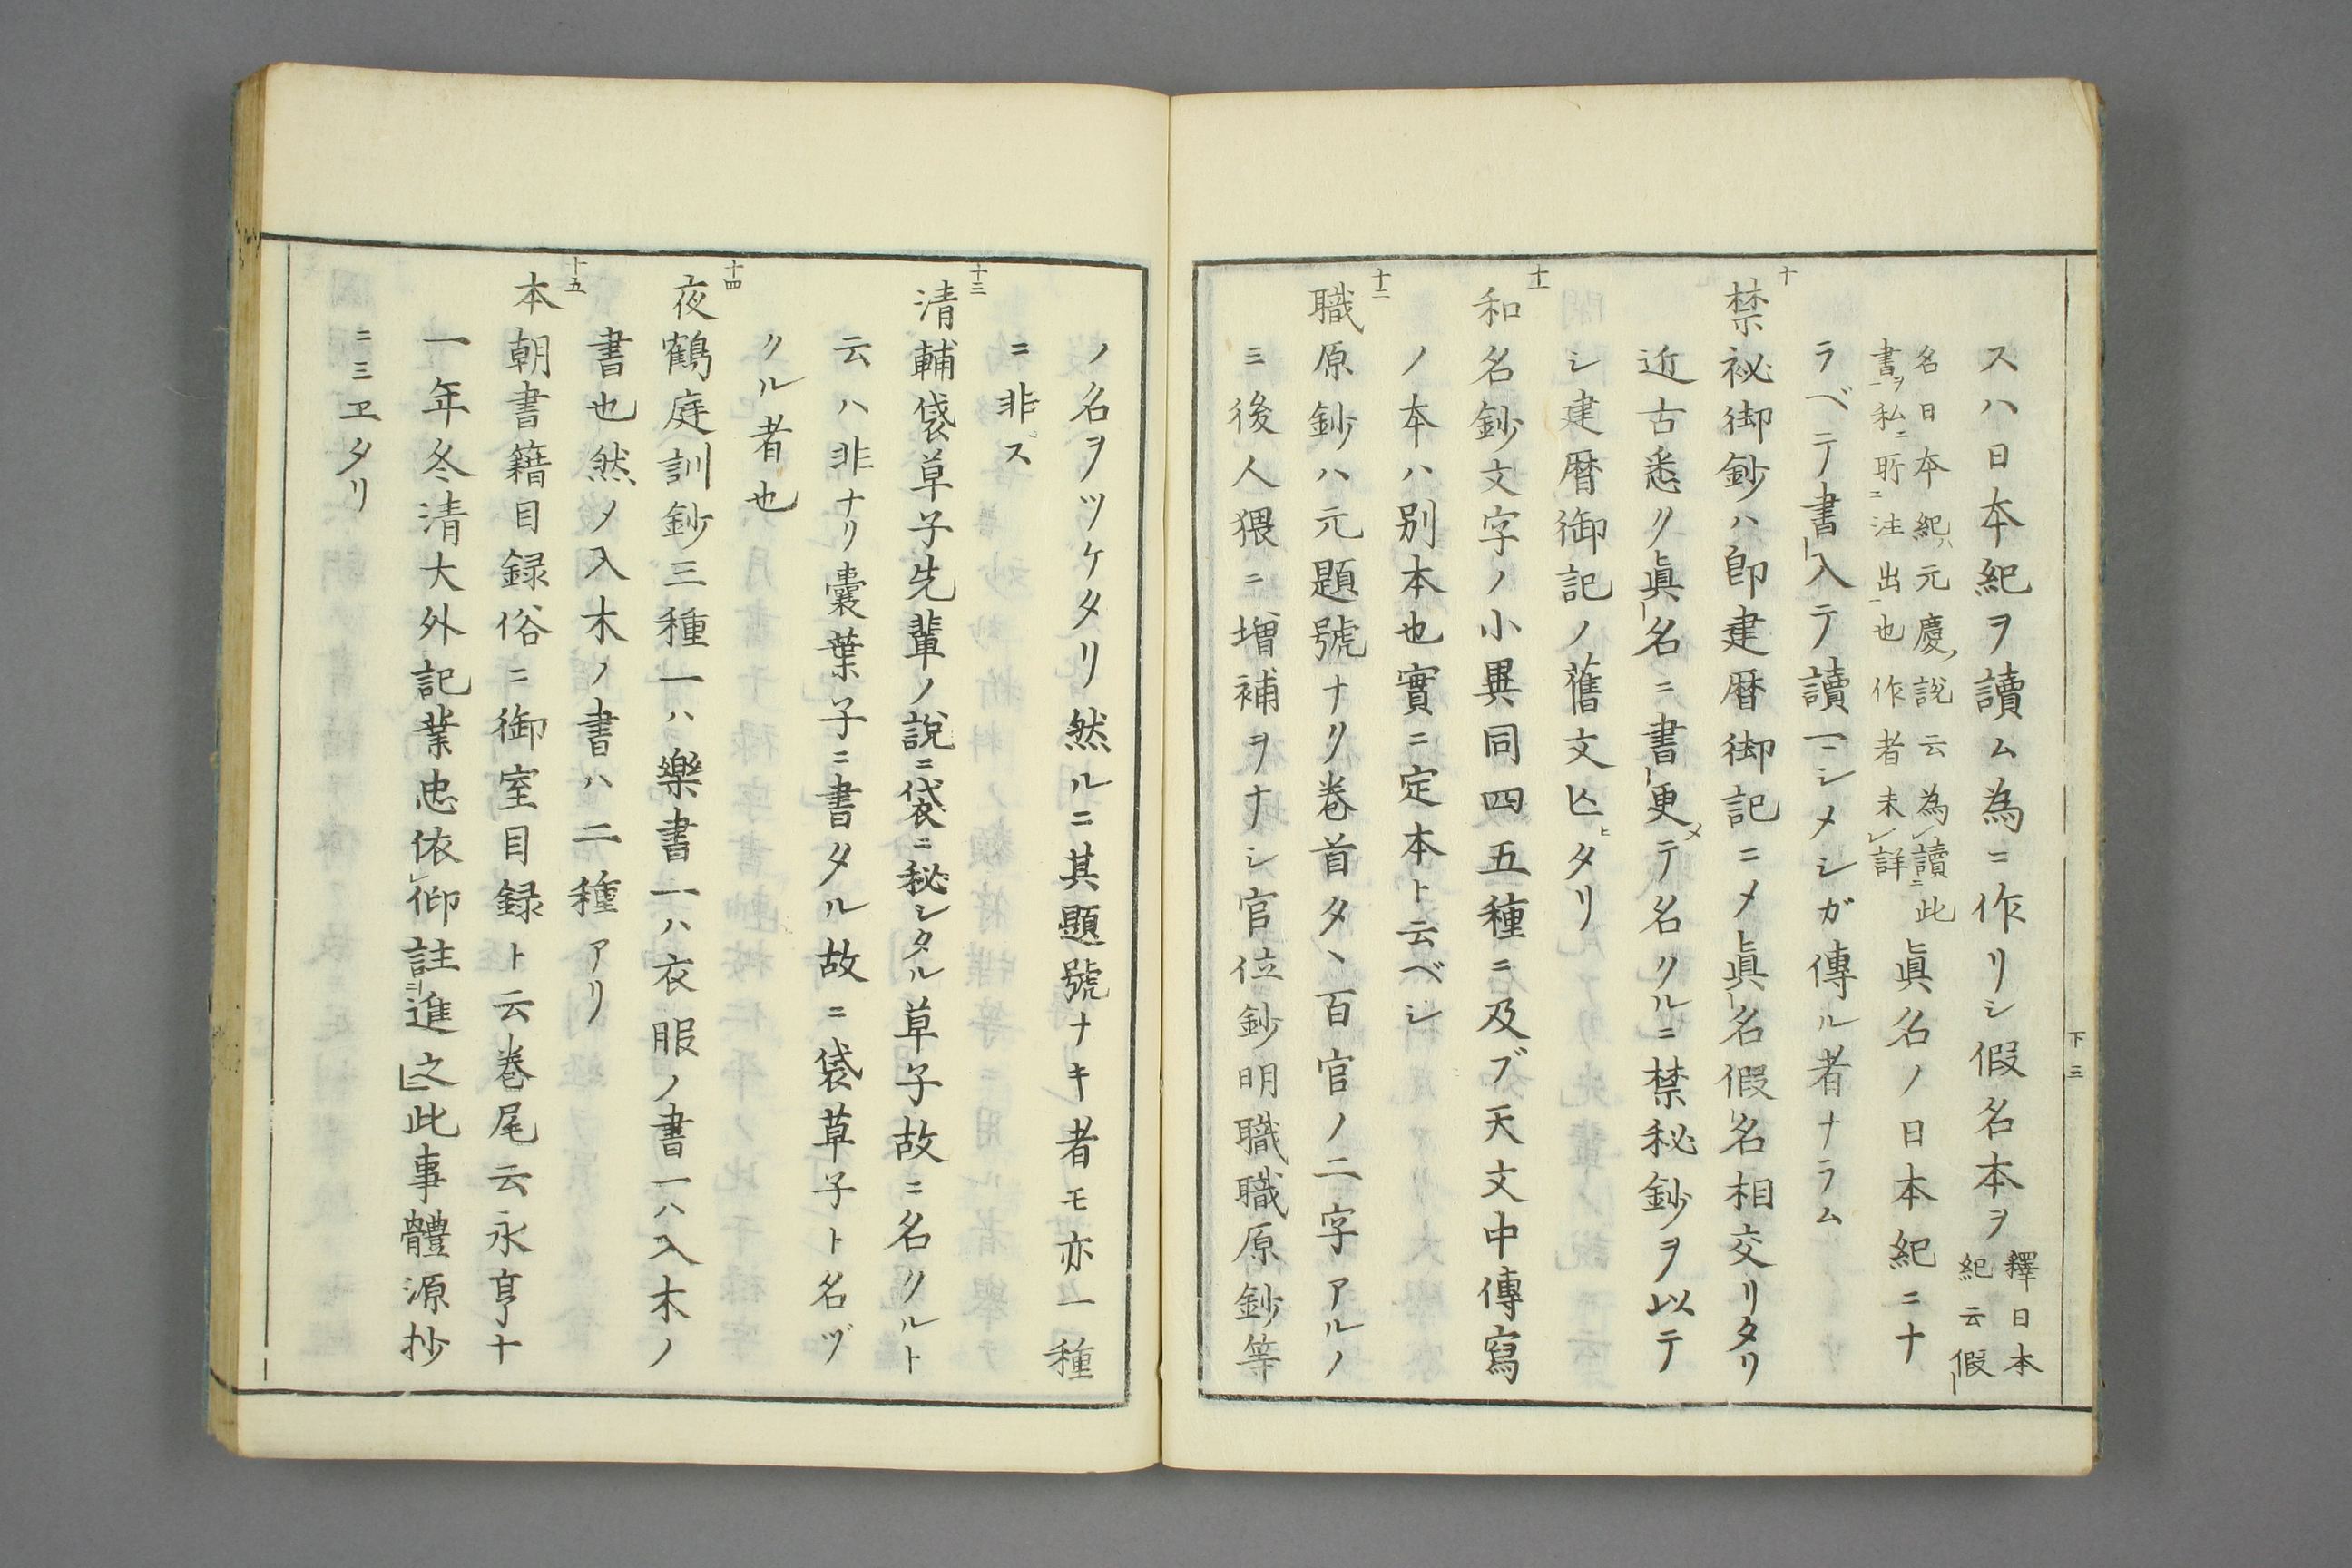 スハ日本紀ヲ讀ム為ニ作リシ假名本ヲ釋日本紀云假
名日本紀ハ元慶ノ說云為讀此書ヲ私ニ所注出也作者未詳眞名ノ日本紀ニナ
ラベテ書入テ讀ニシメシガ傳ル者ナラム
十
禁祕御鈔ハ卽建暦御記ニメ眞名假名相交リタリ
近古悉ク眞名ニ書更メテ名クルニ禁秘鈔ヲ以テ
シ建暦御記ノ舊文亾ヒタリ
十一
和名鈔文字ノ小異同四五種ニ及ブ天文中傳寫
ノ本ハ別本也實ニ定本ト云ベシ
十二
職原鈔ハ元題號ナク卷首タヽ百官ノ二字アルノ
ミ後人猥ニ増補ヲナシ官位鈔明職職原鈔等
下三
ノ名ヲツケタリ然ルニ其題號ナキ者モ亦一種
ニ非ズ
十三
清輔袋草子先輩ノ說ニ袋ニ秘シタル草子故ニ名クルト
云ハ非ナリ囊葉子ニ書タル故ニ袋草子ト名ヅ
クル者也
十四
夜鶴庭訓鈔三種一ハ樂書一ハ衣服ノ書一ハ入木ノ
書也然ノ入木ノ書ハ二種アリ
十五
本朝書籍目録俗ニ御室目録ト云巻尾云永享十
一年冬清大外記業忠依仰註進之此事體源抄
ニミヱタリ